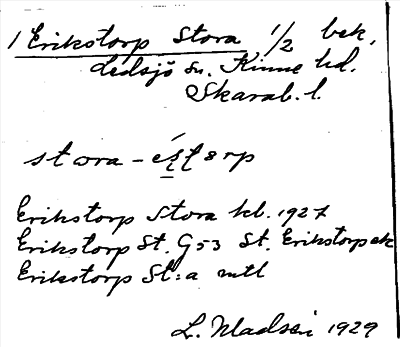 1 Erikstorp Stora 1/2 bek.
Ledsjö sn. Kinne hd.
Skarab. l.
stora - 
Erikstorp Stora kb. 1927
Erikstorp St. G 53 St. Erikstorp ek
Erikstorp St:a mtl
L. 1929